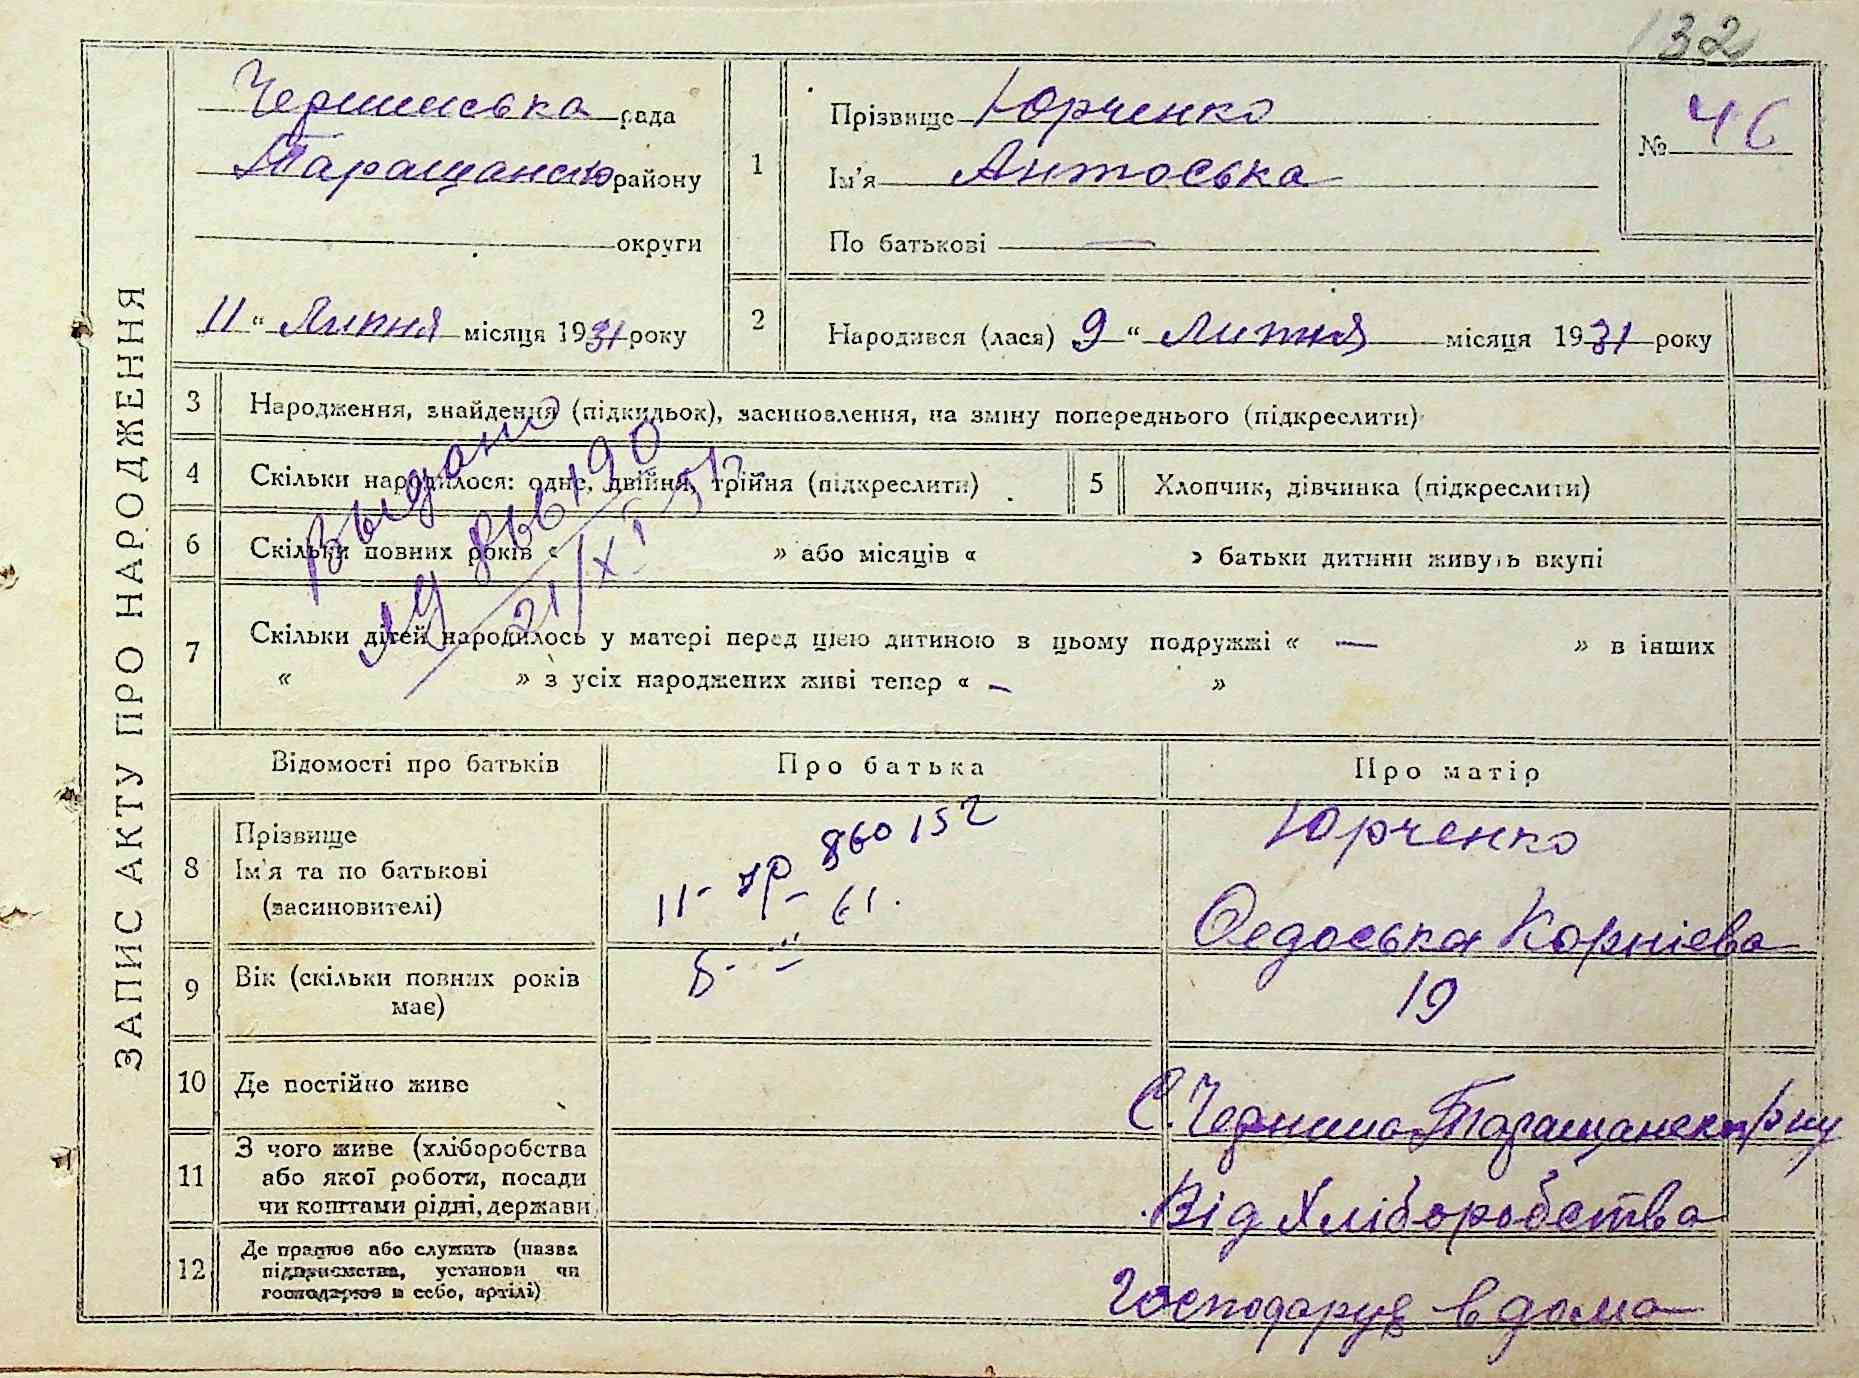 132
ЗАПИС АКТУ ПРО НАРОДЖЕННЯ
рада
Таращансю району
округи
11 " Липня місяця 1931 року
1
Прізвище Юрченко
Ім'я Антоська
По батькові —
№ 46
2
Народився (лася) 9 " Липня місяця 1931 року
3 Народження, знайдення (підкидьок), засиновлення, на зміну попереднього (підкреслити)
4 Скільки народилося: одне, двійня, трійня (підкреслити)
5 Хлопчик, дівчинка (підкреслити)
6 Скільки повних років « » або місяців « » батьки дитини живуть вкупі
7 Скільки дітей народилось у матері перед цією дитиною в цьому подружжі « — » в інших
« » з усіх народжених живі тепер « – »
Выдано
21/XI
Відомості про батьків
Про батька
Про матір
8 Прізвище
Ім'я та по батькові
(засиновителі)
860152
61.
Юрченко
Федоська Корнієва
9 Вік (скільки повних років
має)
19
10 Де постійно живе
С. Чернина Таращанск р-ну
11 З чого живе (хліборобства
або якої роботи, посади
чи коштами рідні, держави
Від Хліборобства
12 Де працює або служить (назва
підприємства, установи чи
господарює в себе, артілі)
Господарує в дома